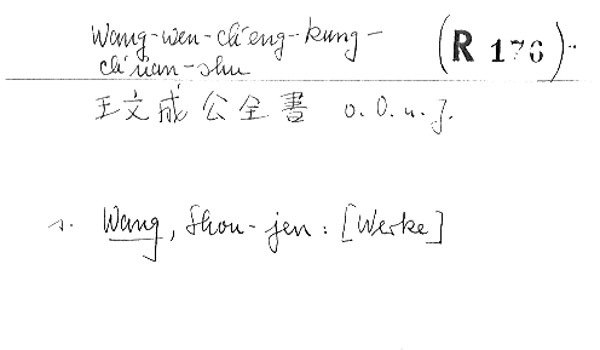 Wang-wen-ch'eng-kung-
ch'üan-shu
(R 176)
王文成公全書 o. O. u. J.
s. Wang, Shou-jen: [Werke]